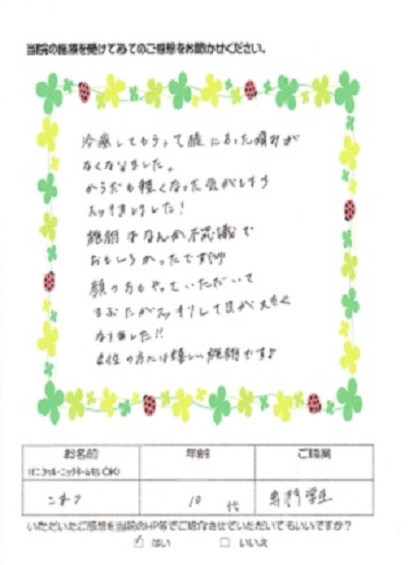 当院の施術を受けてみてのご感想をお聞かせください。
してもらって腰にあった痛みが
なくなりました。
からだも軽くなった気がします
スッキリしました！
施術はなんか不思議で
おもしろかったです
顔の方もやっていただいて
まぶたがスッキリして目が大きく
なりました!!
の方には嬉しい施術です♪
お名前
(イニシャル・ニックネームもOK)
年齢
ご職業
10 代
専門学生
いただいたご感想を当院のHP等でご紹介させていただいてもいいですか？
☑ はい □ いいえ